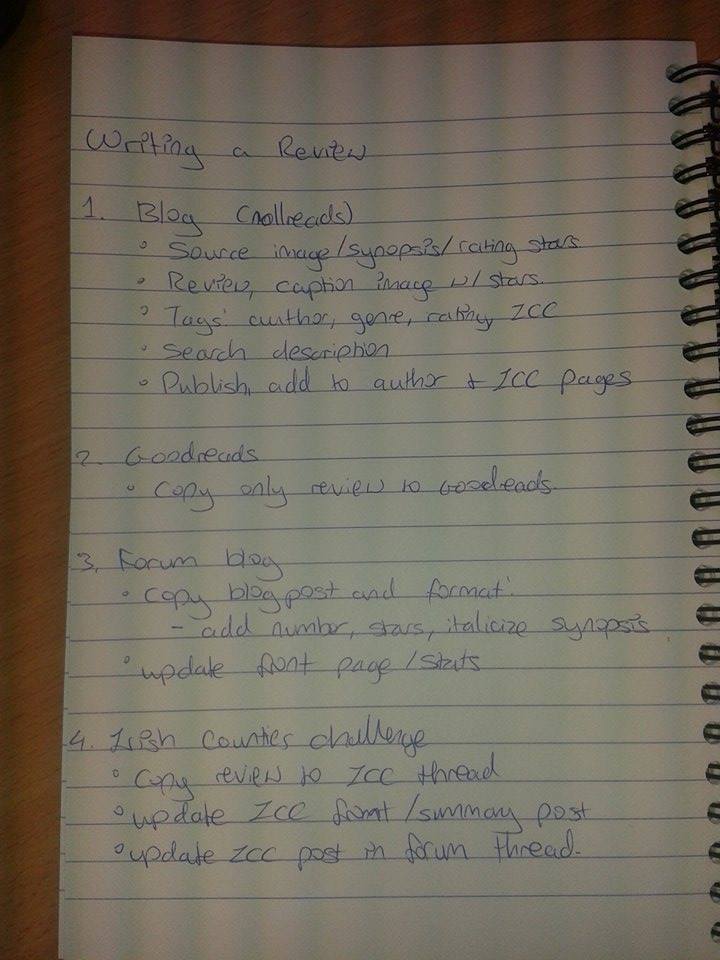 Writing a Review
1. Blog (nollreads)
• Source image/synopsis/rating stars
• Review, caption image w/ stars.
• Tags: author, genre, rating, ICC
• Search description
• Publish, add to author + ICC pages
2. Goodreads
• Copy only review to Goodreads
3. Forum blog
• Copy blog post and format:
- add number, stars, italicize synopsis
• update front page/stats
4. Irish Counties Challenge
• Copy review to ICC thread
• update ICC front/summary post
• update ICC post in forum thread.